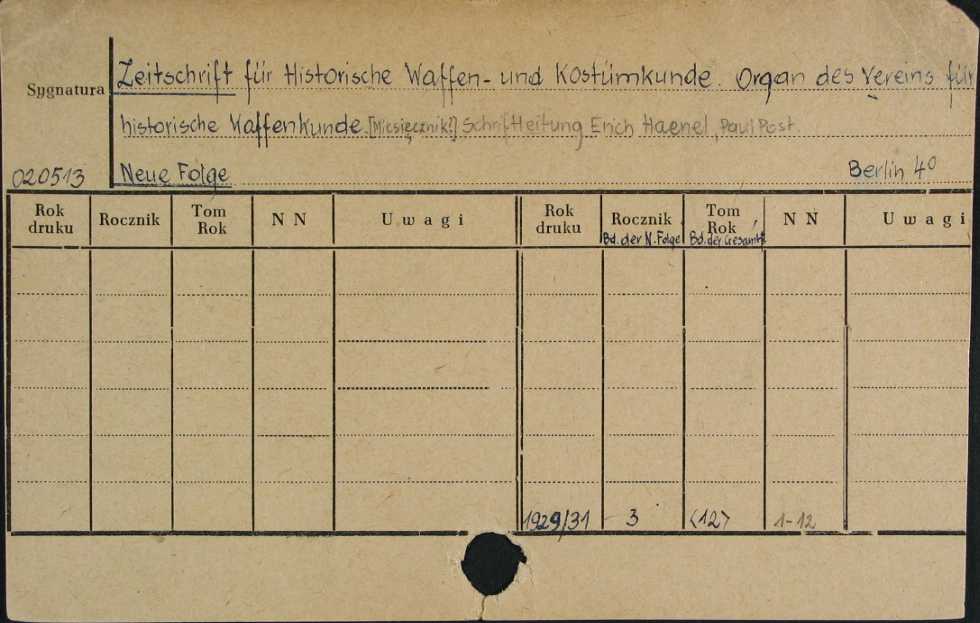 Sygnatura
Zeitschrift für Historische Waffen- und Kostümkunde. Organ des Vereins für
historische Waffenkunde. [Miesięcznik?] Schriftleitung Erich Haenel, Paul Post
020513 Neue Folge Berlin 4⁰
Rok druku Rocznik Tom Rok N N Uwagi Rok druku Rocznik Tom Rok N N Uwagi
Bd. der N. Folge Bd. der Gesamt
1929/31 3 <12> 1-12